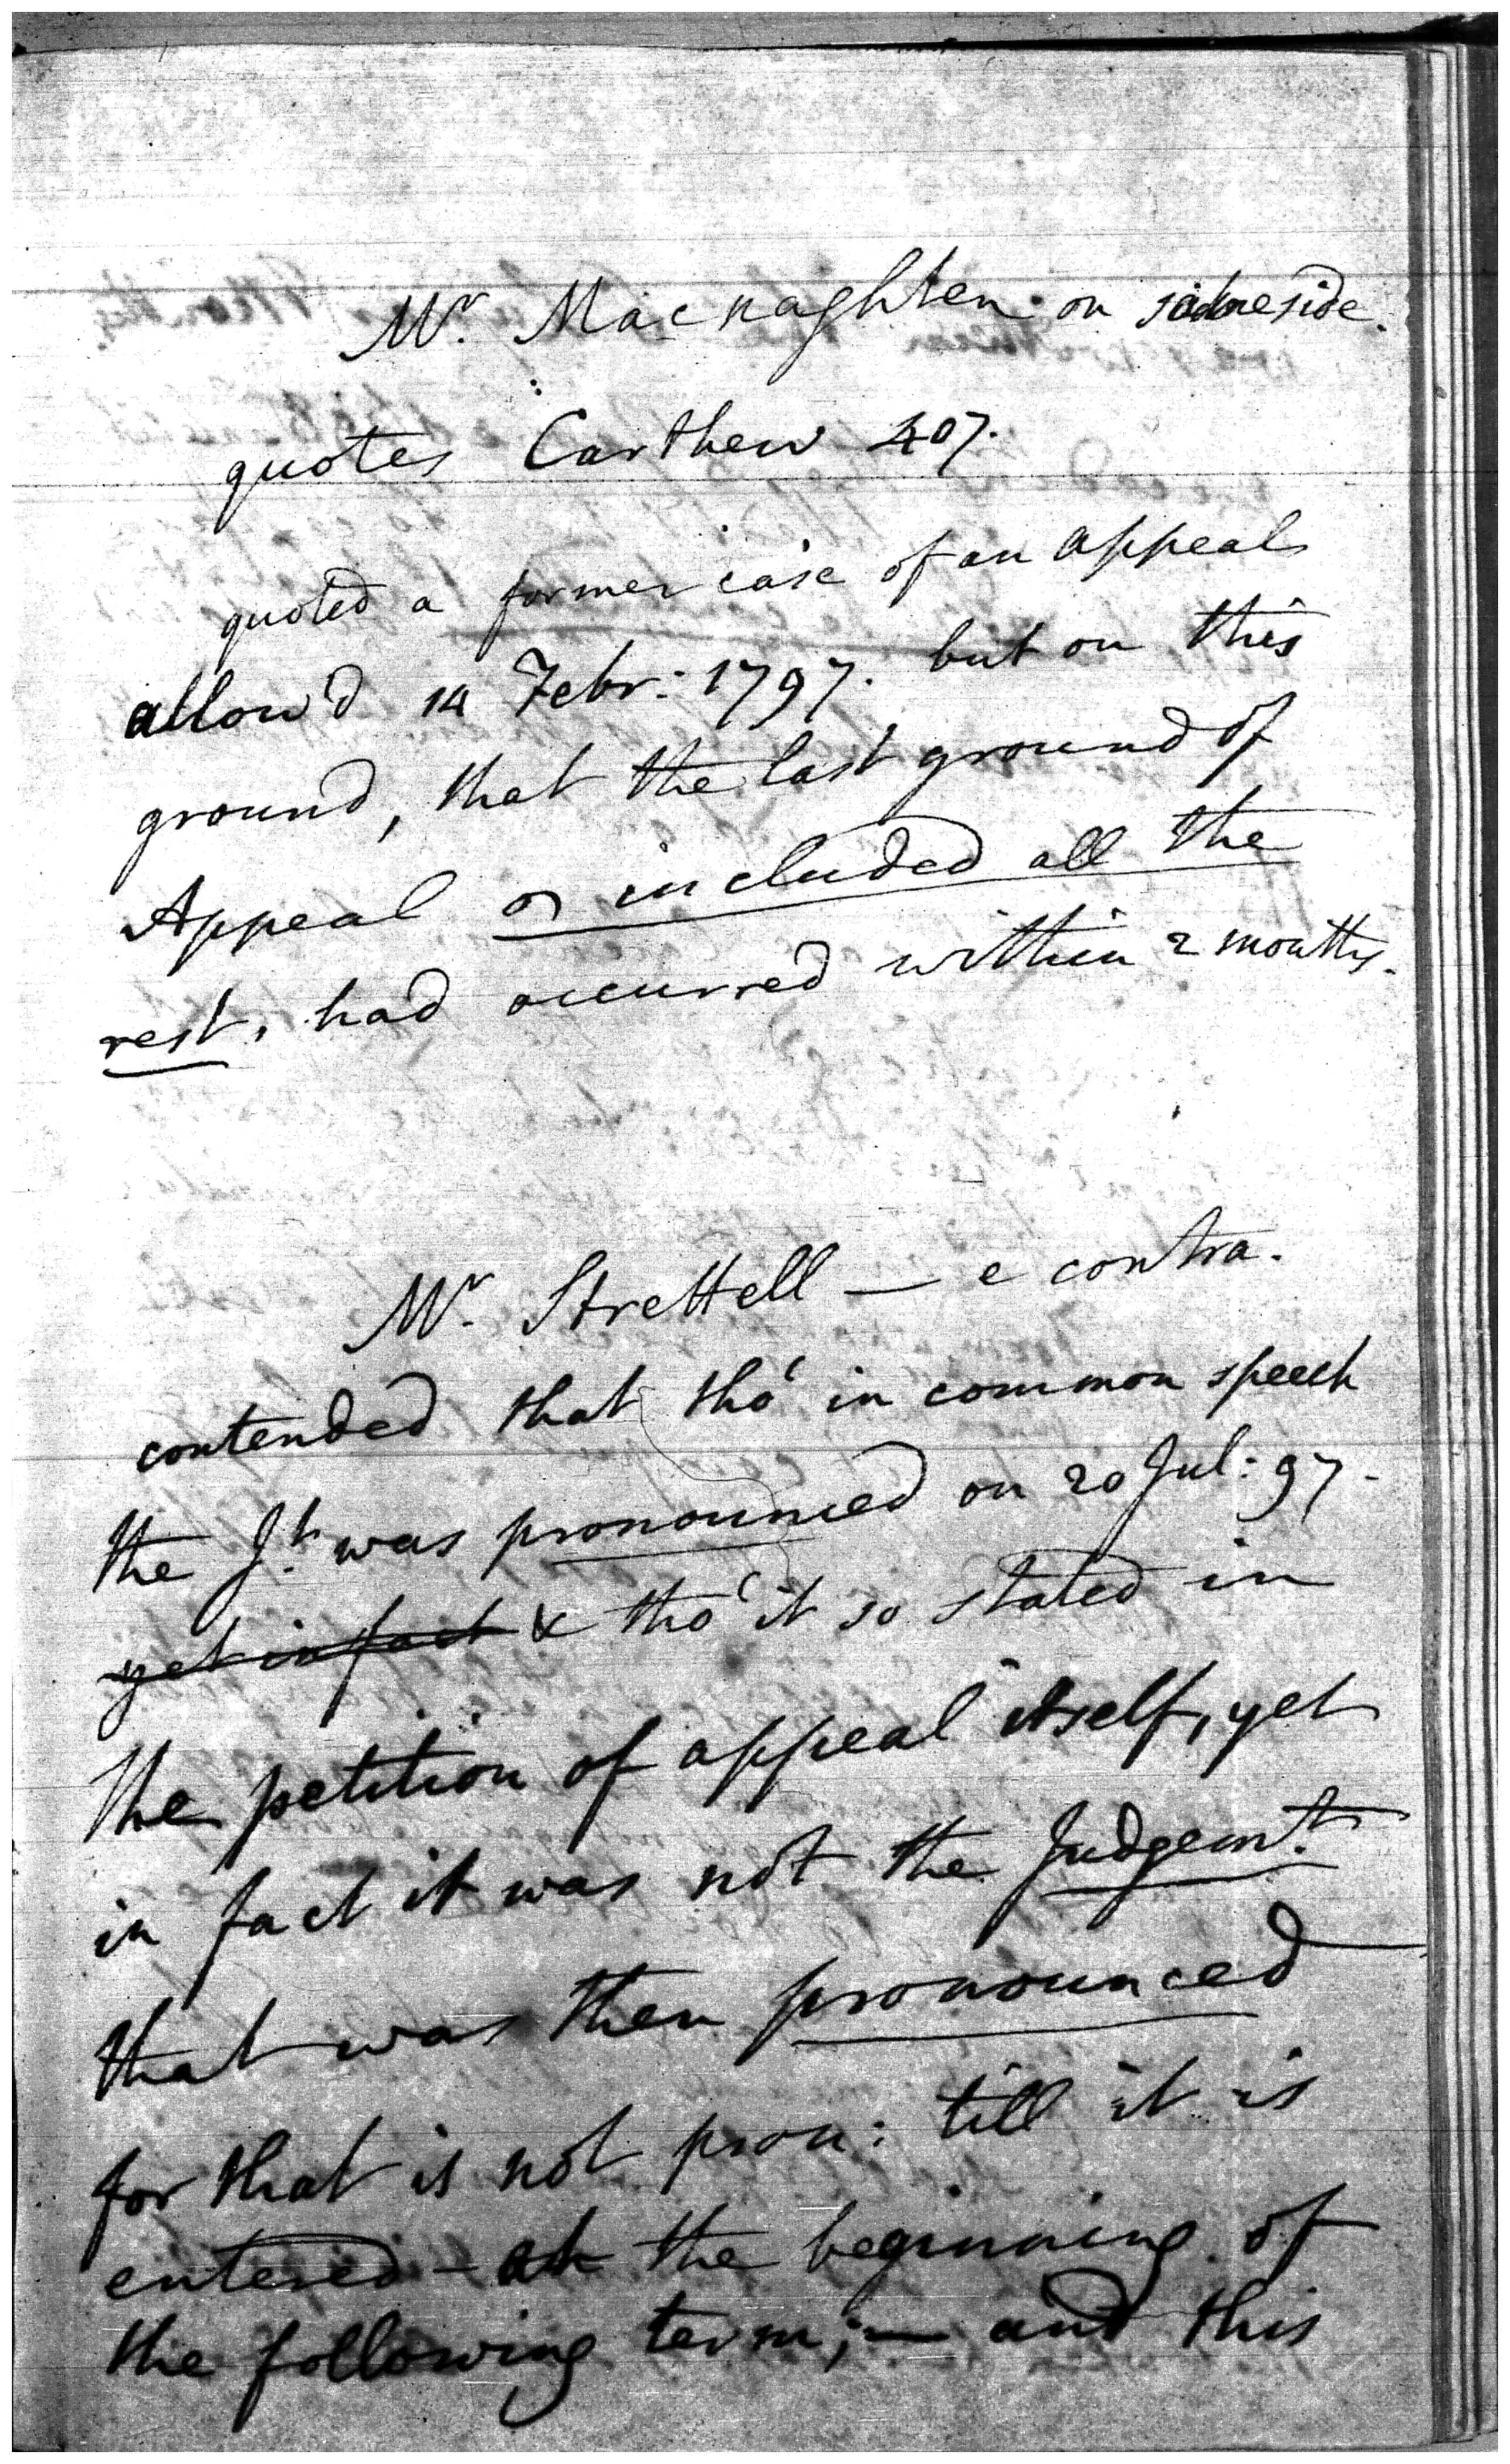 Mr. Macnaghten on same side.
quotes Carthew 407.
quoted a former case of an appeal
allow'd 14 Febr: 1797. but on this
ground, that the last ground of
Appeal included all the
rest, had occurred within 2 months.
Mr. Strettell — e contra.
contended that tho' in common speech
the Jt. was pronounced on 20 Jul: 97.
yet in fact & tho' it so stated in
the petition of appeal itself, yet
in fact it was not the Judgemt.
that was then pronounced
for that is not pron: till it is
entered - at the beginning of
the following term; — and this